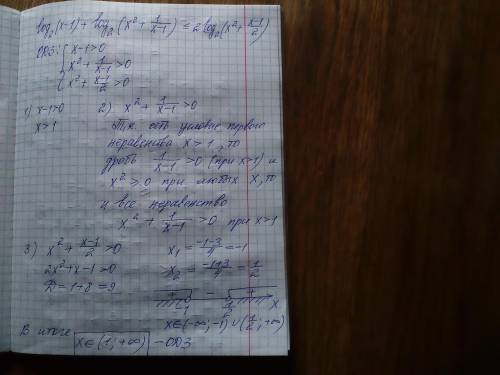 log₂(x-1) + log₂(x² + 1/(x-1)) ≤ 2log₂(x² + (x-1)/2)
ОДЗ: { x-1>0
x² + 1/(x-1) >0
x² + (x-1)/2 >0
1) x-1>0
x>1
2) x² + 1/(x-1) >0
Т.к. есть условие первого
неравенства x>1, то
дробь 1/(x-1) >0 (при x>1) и
x² ≥ 0 при любых x, то
и все неравенство
x² + 1/(x-1) >0 при x>1
3) x² + (x-1)/2 >0
2x²+x-1>0
D=1+8=9
x₁ = (-1-3)/4 = -1
x₂ = (-1+3)/4 = 1/2
+ - +
-1 1/2 x
x∈(-∞;-1)∪(1/2;+∞)
В итоге
x∈(1;+∞) - ОДЗ